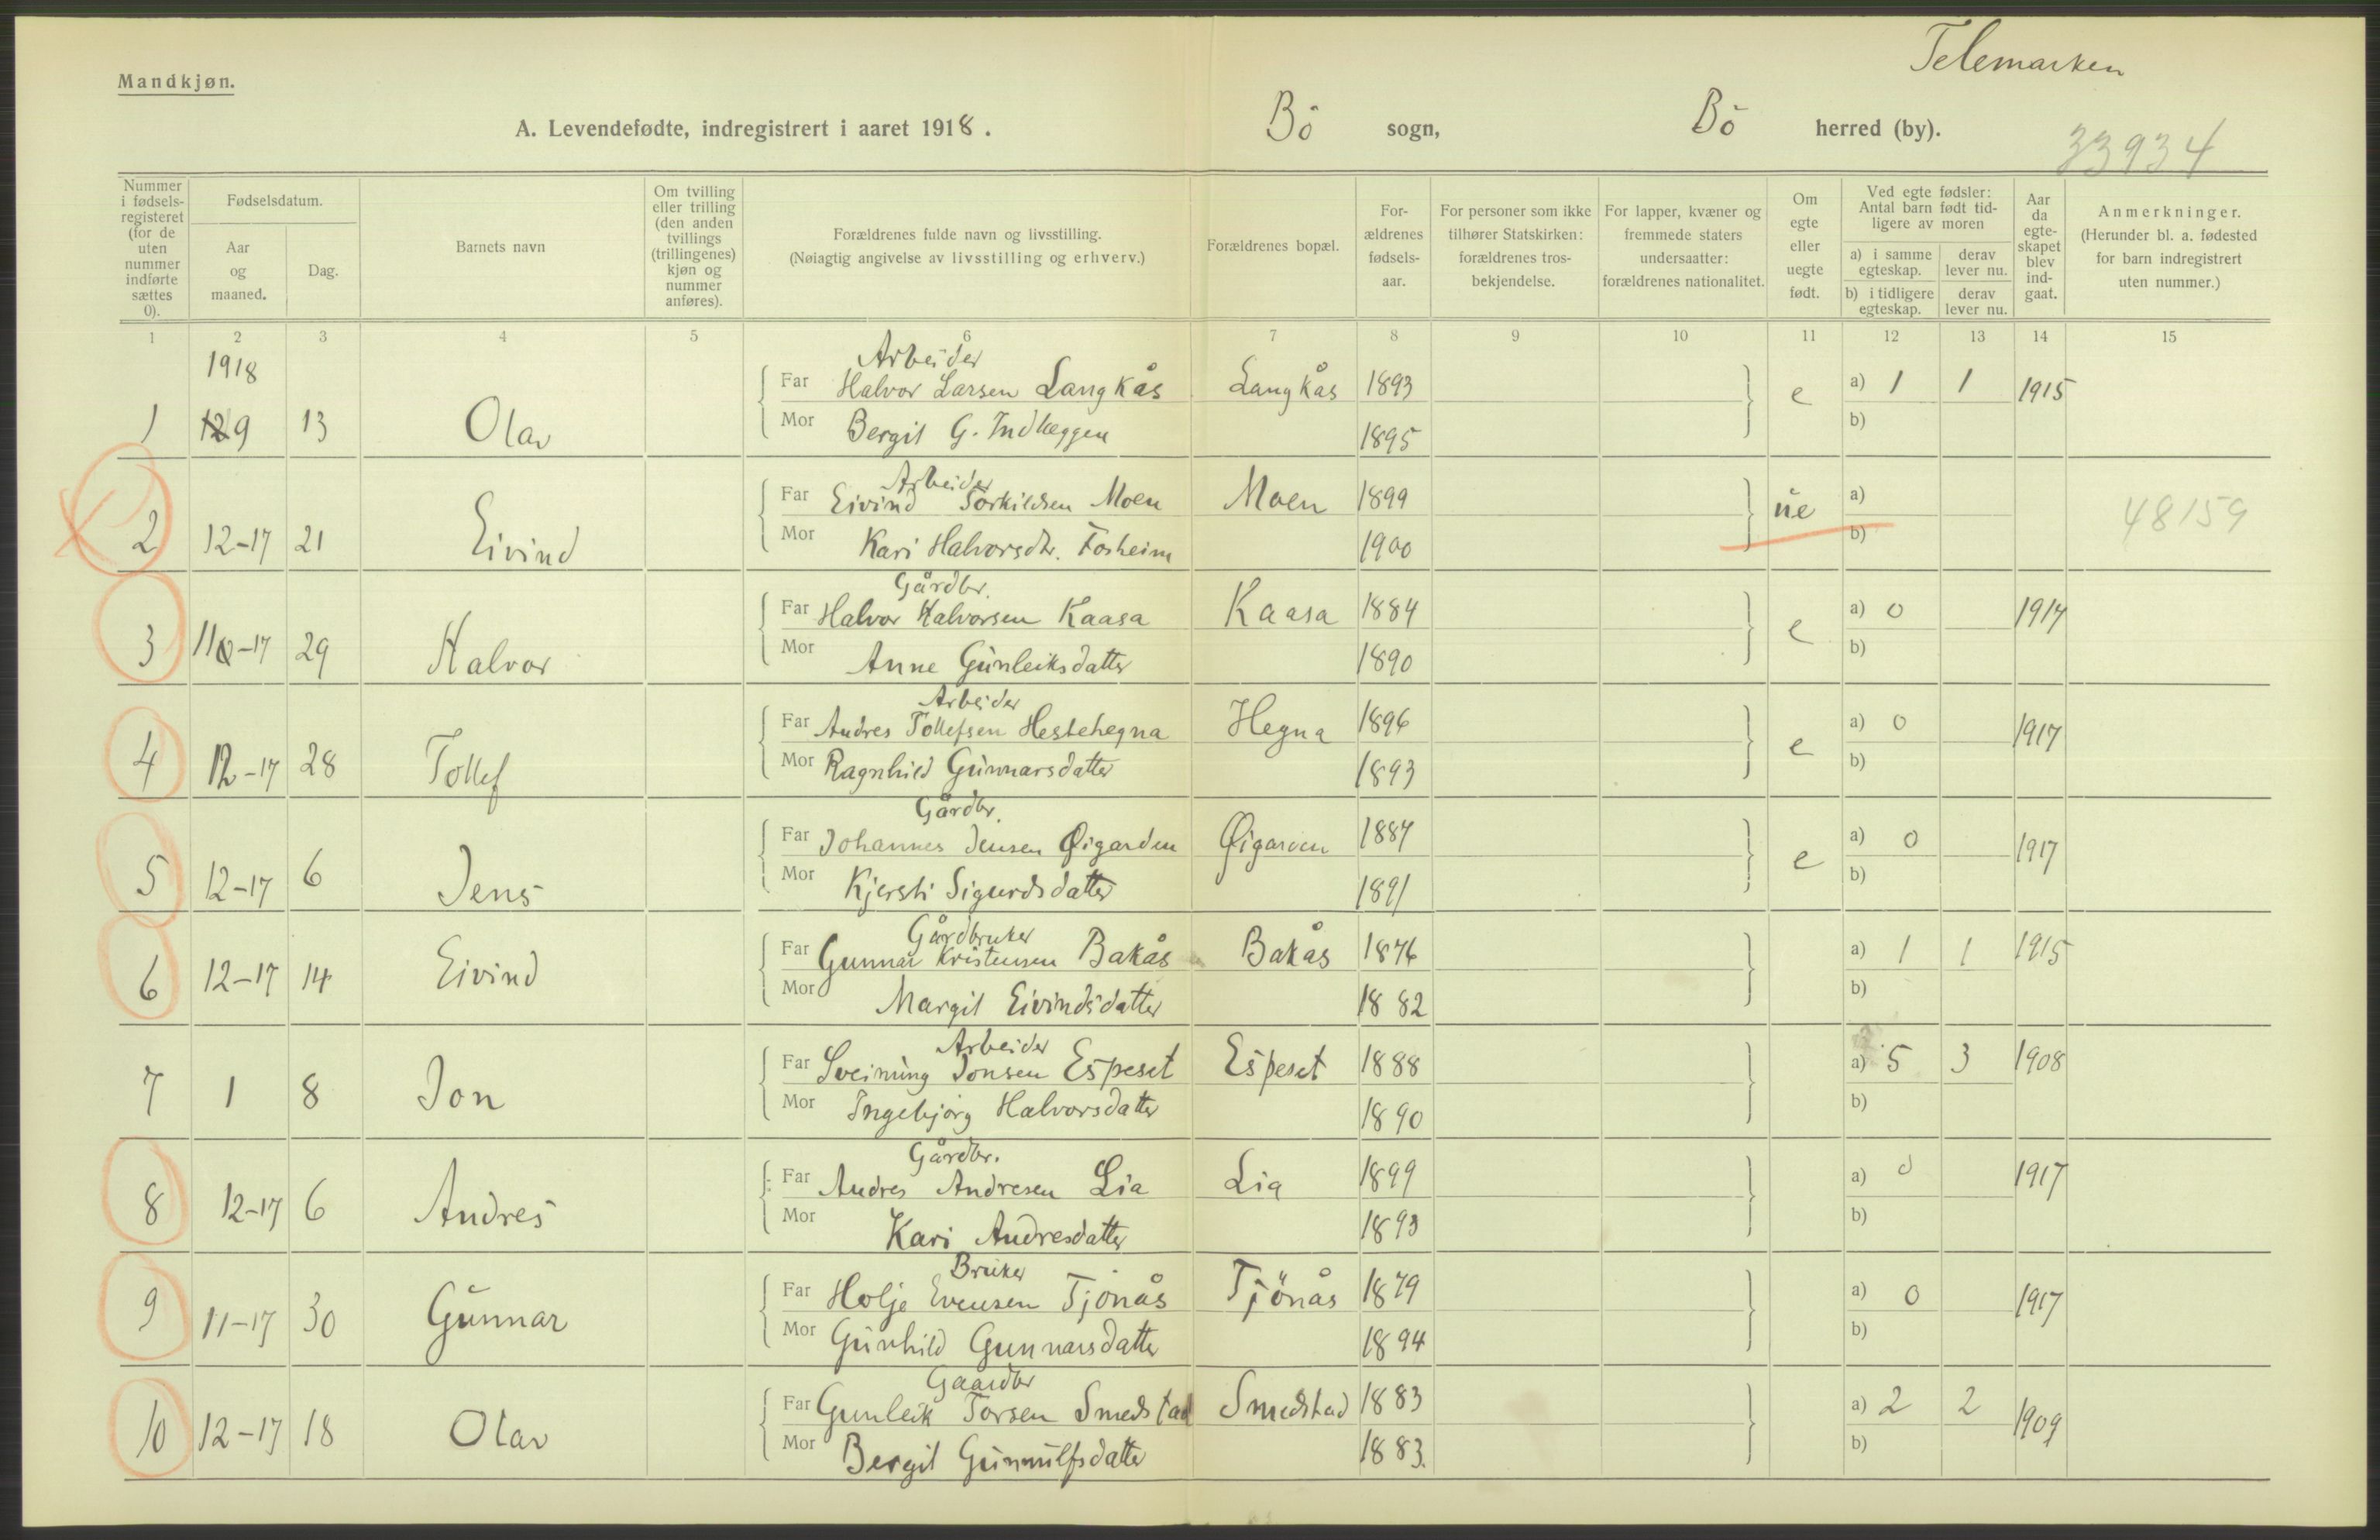 Telemarken
Mandkjøn.
A. Levendefødte, indregistrert i aaret 1918. Bö sogn, Bö herred (by).
33934
Nummer i fødsels-registeret (for de uten nummer indførte sættes 0).
Fødselsdatum.
Aar og maaned.
Dag.
Barnets navn
Om tvilling eller trilling (den anden tvillings (trillingenes) kjøn og nummer anføres).
Forældrenes fulde navn og livsstilling.
(Nøiagtig angivelse av livsstilling og erhverv.)
Forældrenes bopæl.
For-ældrenes fødsels-aar.
For personer som ikke tilhører Statskirken: forældrenes tros-bekjendelse.
For lapper, kvæner og fremmede staters undersaatter: forældrenes nationalitet.
Om egte eller uegte født.
Ved egte fødsler: Antal barn født tid-ligere av moren
a) i samme egteskap. derav lever nu.
b) i tidligere egteskap. derav lever nu.
Aar da egte-skapet blev ind-gaat.
Anmerkninger.
(Herunder bl. a. fødested for barn indregistrert uten nummer.)
1 2 3 4 5 6 7 8 9 10 11 12 13 14 15
1918
Arbeider
Far Halvor Larsen Langkås Langkås 1893 e a) 1 1 1915
1 9 13 Olav Mor Bergit G. Indlæggen 1895 b)
Arbeider
Far Eivind Torkildsen Moen Moen 1899 ue a) 48159
2 12-17 21 Eivind Mor Kari Halvorsdtr. Fosheim 1900 b)
Gårdbr.
Far Halvor Halvorsen Kaasa Kaasa 1884 e a) 0 1917
3 11-17 29 Halvor Mor Anne Gunleiksdatter 1890 b)
Arbeider
Far Andres Tollefsen Hestehegna Hegna 1896 e a) 0 1917
4 12-17 28 Tollef Mor Ragnhild Gunnarsdatter 1893 b)
Gårdbr.
Far Johannes Jensen Øigarden Øigarden 1887 e a) 0 1917
5 12-17 6 Jens Mor Kjersti Sigurdsdatter 1891 b)
Gårdbruker
Far Gunnar Kristensen Bakås Bakås 1876 a) 1 1 1915
6 12-17 14 Eivind Mor Margit Eivindsdatter 1882 b)
Arbeider
Far Sveinung Jonsen Espeset Espeset 1888 a) 5 3 1908
7 1 8 Jon Mor Ingebjörg Halvorsdatter 1890 b)
Gårdbr.
Far Andres Andresen Lia Lia 1899 a) 0 1917
8 12-17 6 Andres Mor Kari Andresdatter 1893 b)
Bruker
Far Holje Evensen Tjönås Tjönås 1879 a) 0 1917
9 11-17 30 Gunnar Mor Gunhild Gunnarsdatter 1894 b)
Gaardbr
Far Gunleik Torsen Smedstad Smedstad 1883 a) 2 2 1909
10 12-17 18 Olav Mor Bergit Gunnulfsdatter 1883. b)